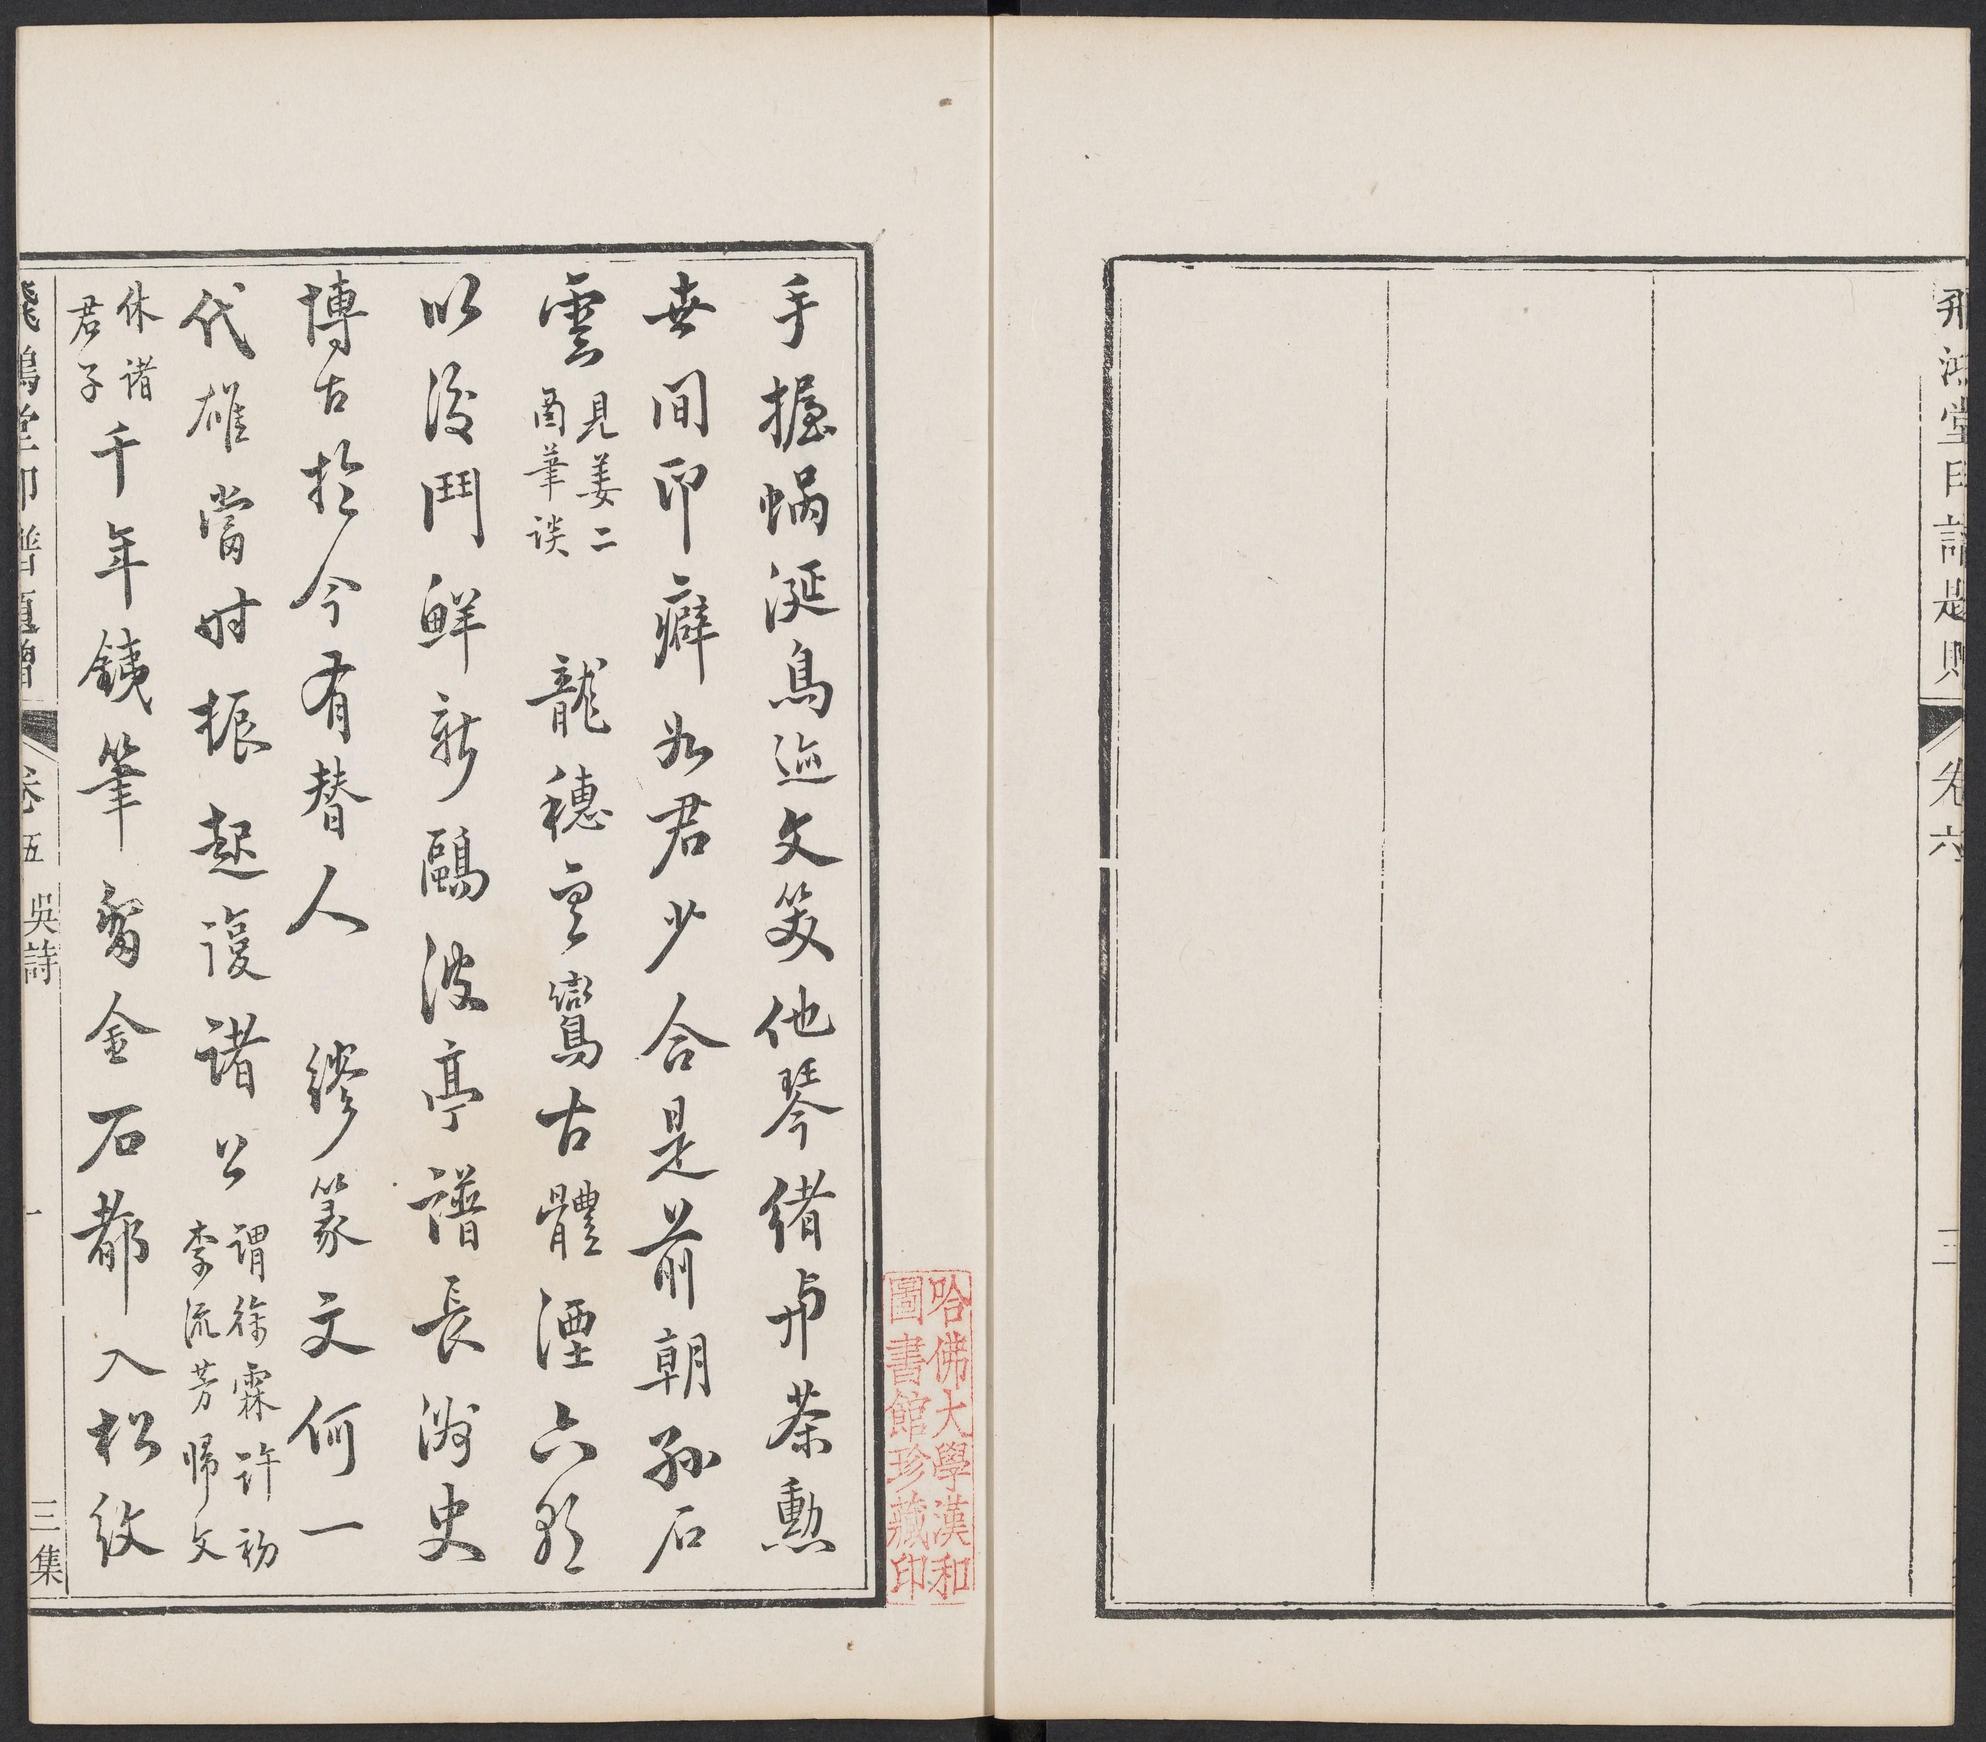 飛鴻堂印譜題贈 卷六 三
手握蝸涎鳥迹文笑他琴緒與茶勲
世間印癖如君少合是前朝孫石
雲見姜二酉筆談 龍穗雲鸞古體湮六朝
以後鬥鮮新鷗波亭譜長洲史
博古於今有替人 繆篆文何一
代雄當時振起復諸公謂徐霖許初李流芳歸文
休諸君子千年銕筆留金石都入松紋
飛鴻堂印譜題贈 卷五 吳詩 一 三集
哈佛大學漢和圖書館珍藏印